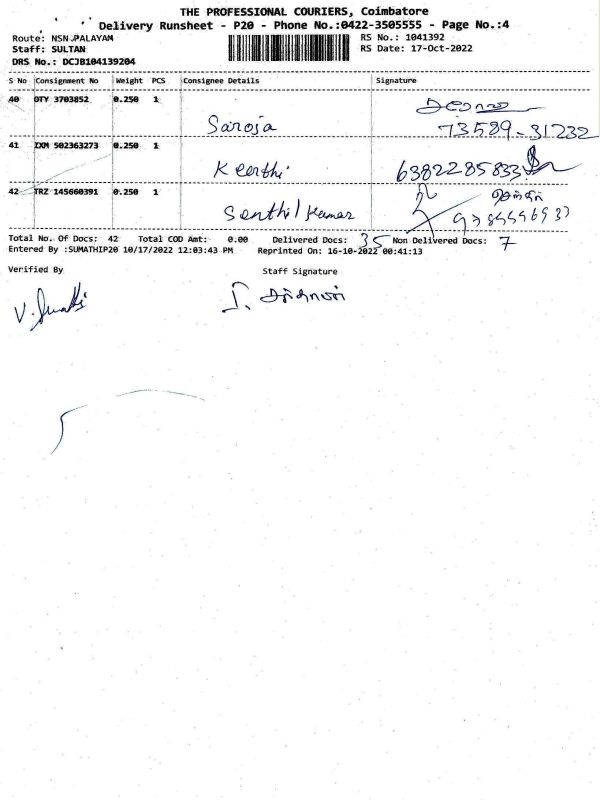 THE PROFESSIONAL COURIERS, Coimbatore
Delivery Runsheet - P20 - Phone No.:0422-3505555 - Page No.:4
Route: NSN.PALAYAM RS No.: 1041392
Staff: SULTAN RS Date: 17-Oct-2022
DRS No.: DCJB104139204
S No Consignment No Weight PCS Consignee Details Signature
40 DTY 3703852 0.250 1
Saroja 73589-31232
41 IXM 502363273 0.250 1
Keerthi 6382285833
42 TRZ 145660391 0.250 1
Senthil kumar
Total No. Of Docs: 42 Total COD Amt: 0.00 Delivered Docs: 35 Non Delivered Docs: 7
Entered By :SUMATHIP20 10/17/2022 12:03:43 PM Reprinted On: 16-10-2022 00:41:13
Verified By Staff Signature
V. Sumathi